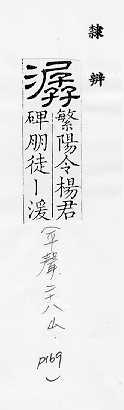 隸辨
潺
繁陽令楊君
碑朋徒丨湲
(平聲二十八山, p169)